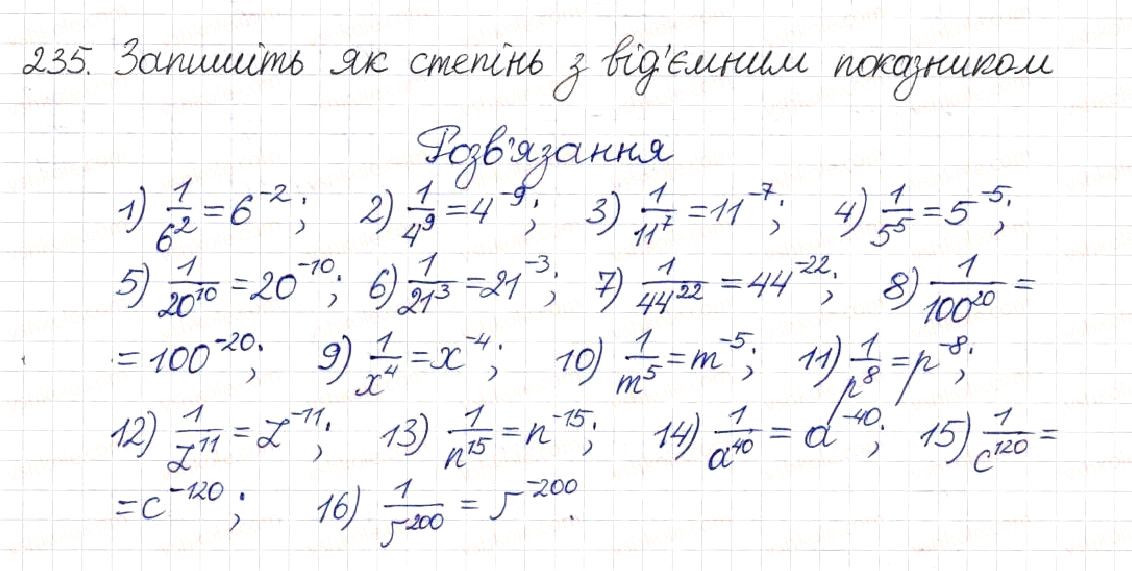 235. Запишіть як степінь з від'ємним показником
Розв'язання
1) 1/6² = 6⁻²; 2) 1/4⁹ = 4⁻⁹; 3) 1/11⁷ = 11⁻⁷; 4) 1/5⁵ = 5⁻⁵;
5) 1/20¹⁰ = 20⁻¹⁰; 6) 1/21³ = 21⁻³; 7) 1/44²² = 44⁻²²; 8) 1/100²⁰ =
= 100⁻²⁰; 9) 1/x⁴ = x⁻⁴; 10) 1/m⁵ = m⁻⁵; 11) 1/p⁸ = p⁻⁸;
12) 1/z¹¹ = z⁻¹¹; 13) 1/n¹⁵ = n⁻¹⁵; 14) 1/a⁴⁰ = a⁻⁴⁰; 15) 1/c¹²⁰ =
= c⁻¹²⁰; 16) 1/ ²⁰⁰ = ⁻²⁰⁰.